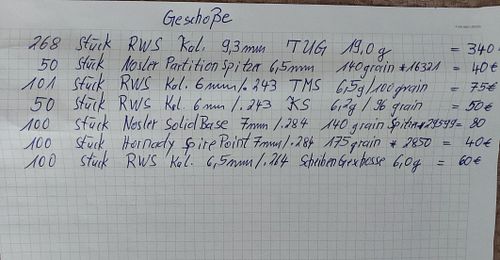 Geschoße
268 Stück RWS Kal. 9,3mm TUG 19,0g = 340.
50 Stück Nosler Partition Spitzer 6,5mm 140grain *16321 = 40€
101 Stück RWS Kal. 6mm/.243 TMS 6,5g/100grain = 75€
50 Stück RWS Kal. 6mm/.243 KS 6,2g/96grain = 50€
100 Stück Nosler SolidBase 7mm/.284 140grain Spitzer *29599 = 80
100 Stück Hornady SpirePoint 7mm/.284 175grain * 2850 = 40€
100 Stück RWS Kal. 6,5mm/.264 Scheiben Geschosse 6,0g = 60€